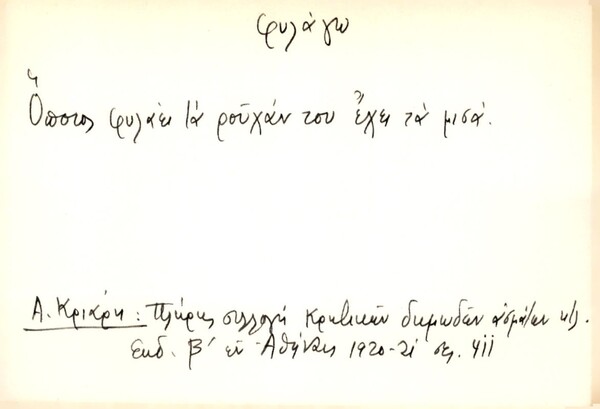 φυλάγω
Ὅποιος φυλάει τὰ ροῦχάν του ἔχει τὰ μισά.
Α. Κριάρη : Πλήρης συλλογή Κρητικῶν δημωδῶν ἀσμάτων κτλ.
Εκδ. β' ἐν Ἀθήναις 1920-21 σελ. 411